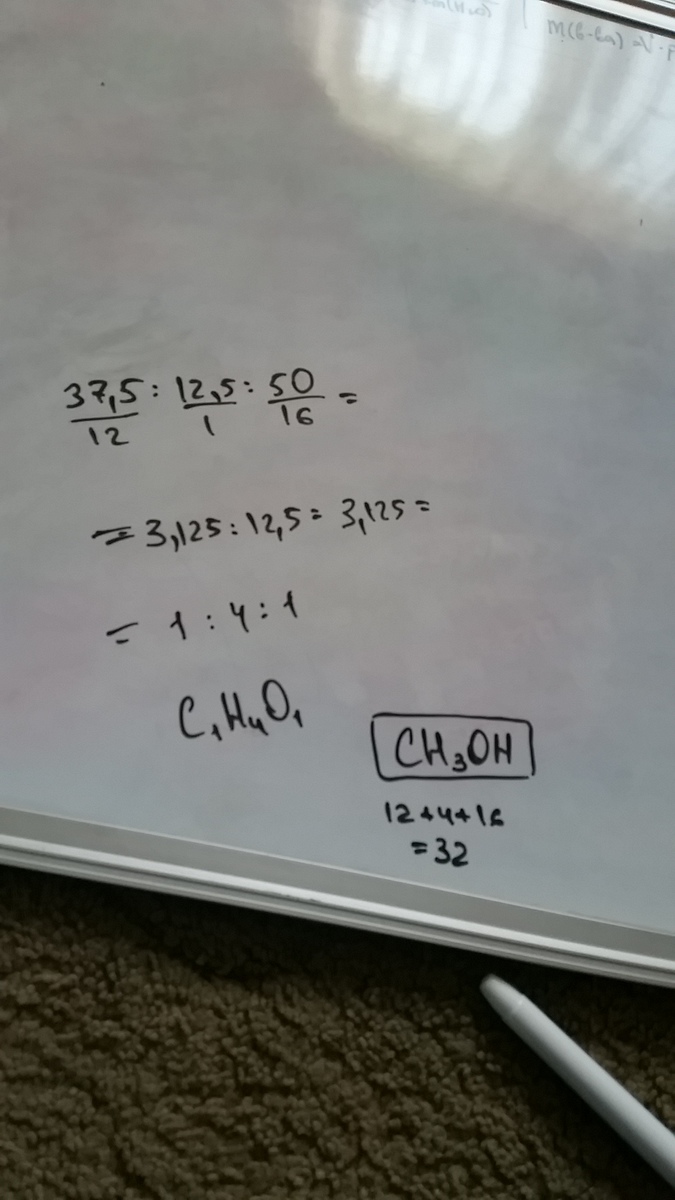 m(в-ва) = V · ρ
37,5 : 12,5 : 50 =
12 1 16
= 3,125 : 12,5 : 3,125 =
= 1 : 4 : 1
C₁H₄O₁
CH₃OH
12+4+16
= 32